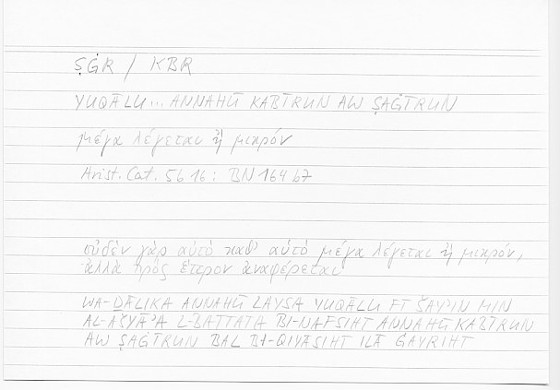 ṢĠR / KBR
YUQĀLU... ANNAHŪ KABĪRUN AW ṢAĠĪRUN
μέγα λέγεται ἢ μικρόν
Arist. Cat. 5b16 : BN 164b7
οὐδὲν γὰρ αὐτὸ καθ' αὑτὸ μέγα λέγεται ἢ μικρόν,
ἀλλὰ πρὸς ἕτερον ἀναφέρεται
WA-ḎĀLIKA ANNAHŪ LAYSA YUQĀLU FĪ ŠAY'IN MIN
AL-AŠYĀ'A L-BATTATA BI-NAFSIHĪ ANNAHŪ KABĪRUN
AW ṢAĠĪRUN BAL BI-QIYĀSIHĪ ILĀ ĠAYRIHĪ